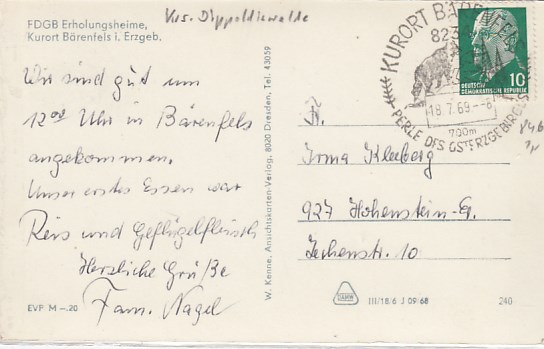 FDGB Erholungsheime,
Kurort Bärenfels i. Erzgeb.
Krs. Dippoldiswalde
Wir sind gut um
12 00 Uhr in Bärenfels
angekommen.
Unser erstes Essen war
Reis und Geflügelfleisch
Herzliche Grüße
Fam. Nagel
EVP M –.20
W. Kenne, Ansichtskarten-Verlag, 8020 Dresden, Tel. 43059
KURORT BÄRENFELS
823
18.7.69.–6
700m
PERLE DES OSTERZGEBIRGES
10
DEUTSCHE
DEMOKRATISCHE REPUBLIK
Irma Kleeberg
927 Hohenstein-E.
Zechenstr. 10
III/18/6 J 09/68
240